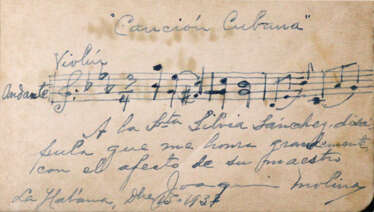 "Canción Cubana"
Violín
Andante
2/4
A la Sta Silvia Sánchez, discí
pula que me honra grandemente,
con el afecto de su maestro
Joaquin Molina
La Habana, Dbre 15-1937